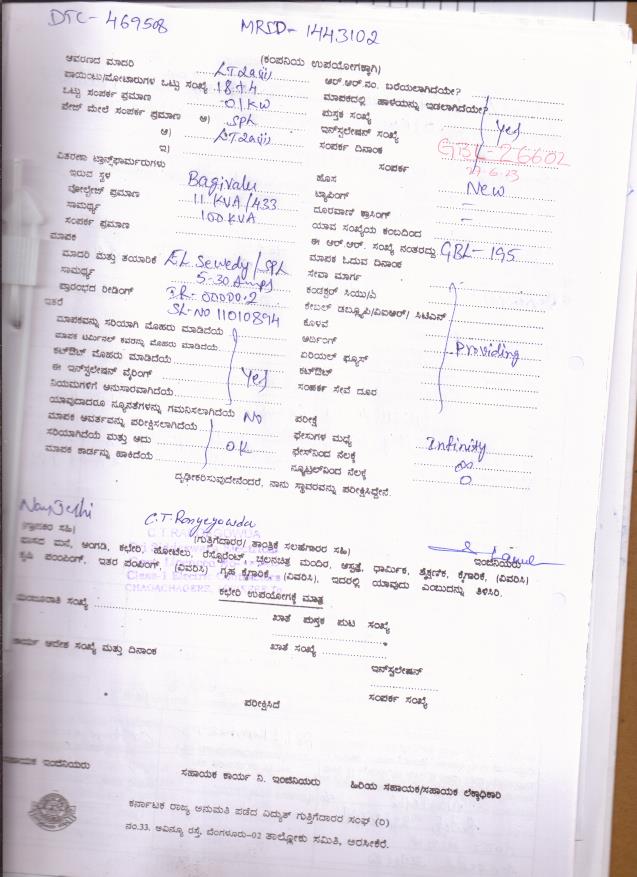 DTC- 469508 MRSD- 1443102
(ಕಂಪನಿಯ ಉಪಯೋಗಕ್ಕಾಗಿ)
ಆವರಣದ ಮಾದರಿ LT2a(ii) ಆರ್.ಆರ್.ನಂ. ಬರೆಯಲಾಗಿದೆಯೇ?
ಪಾಯಿಂಟು/ಮೋಟಾರುಗಳ ಒಟ್ಟು ಸಂಖ್ಯೆ 18+4 ಮಾಪಕದಲ್ಲಿ ಹಾಳೆಯನ್ನು ಇಡಲಾಗಿದೆಯೇ?
ಒಟ್ಟು ಸಂಪರ್ಕ ಪ್ರಮಾಣ 01 KW ಪುಸ್ತಕ ಸಂಖ್ಯೆ Yes
ಪೇಜ್ ಮೇಲೆ ಸಂಪರ್ಕ ಪ್ರಮಾಣ ಅ) SPh ಇನ್‌ಸ್ಟಲೇಷನ್ ಸಂಖ್ಯೆ
ಆ) LT2a(ii) ಸಂಪರ್ಕ ದಿನಾಂಕ GBL-26602
ಇ) ಸಂಪರ್ಕ 7-6-23
ವಿತರಣಾ ಟ್ರಾನ್ಸ್‌ಫಾರ್ಮರುಗಳು ಹೊಸ New
ಇರುವ ಸ್ಥಳ Bagivalu ಟ್ಯಾಪಿಂಗ್ –
ವೋಲ್ಟೇಜ್ ಪ್ರಮಾಣ 11 KVA/433 ದೂರವಾಣಿ ಕ್ರಾಸಿಂಗ್ –
ಸಾಮರ್ಥ್ಯ 100 KVA ಯಾವ ಸಂಖ್ಯೆಯ ಕಂಬದಿಂದ
ಸಂಪರ್ಕ ಪ್ರಮಾಣ ಈ ಆರ್.ಆರ್. ಸಂಖ್ಯೆ ನಂತರದ್ದು GBL-195
ಮಾಪಕ ಮಾಪಕ ಓದುವ ದಿನಾಂಕ
ಮಾದರಿ ಮತ್ತು ತಯಾರಿಕೆ EL Sewedy/SPh ಸೇವಾ ಮಾರ್ಗ
ಸಾಮರ್ಥ್ಯ 5-30 Amps ಕಂಡಕ್ಟರ್ ಸಿಯು/ಎ
ಪ್ರಾರಂಭದ ರೀಡಿಂಗ್ 00000.2 ಕೇಬಲ್ ಡಬ್ಲ್ಯೂಪಿ/ವಿಐಆರ್/ ಸಿಟಿಎಸ್
ಇತರೆ SL-NO 11010894 ಕೊಳವೆ
ಮಾಪಕವನ್ನು ಸರಿಯಾಗಿ ಮೊಹರು ಮಾಡಿದೆಯೆ ಅರ್ಥಿಂಗ್
ಮಾಪಕ ಟರ್ಮಿನಲ್ ಕವರನ್ನು ಮೊಹರು ಮಾಡಿದೆಯೆ ಏರಿಯಲ್ ಫ್ಯೂಸ್ Providing
ಕಟ್‌ಔಟ್ ಮೊಹರು ಮಾಡಿದೆಯೆ ಕಟ್‌ಔಟ್
ಈ ಇನ್‌ಸ್ಟಲೇಷನ್ ವೈರಿಂಗ್ Yes ಸಂಪರ್ಕ ಸೇವೆ ದೂರ
ನಿಯಮಗಳಿಗೆ ಅನುಸಾರವಾಗಿದೆಯೆ
ಯಾವುದಾದರೂ ನ್ಯೂನತೆಗಳನ್ನು ಗಮನಿಸಲಾಗಿದೆಯೆ NO ಪರೀಕ್ಷೆ
ಮಾಪಕ ಆವರ್ತವನ್ನು ಪರೀಕ್ಷಿಸಲಾಗಿದೆಯೆ ಫೇಸುಗಳ ಮಧ್ಯೆ Infinity
ಸರಿಯಾಗಿದೆಯೆ ಮತ್ತು ಅದು OK ಫೇಸ್‌ನಿಂದ ನೆಲಕ್ಕೆ ∞
ಮಾಪಕ ಕಾರ್ಡನ್ನು ಹಾಕಿದೆಯೆ ನ್ಯೂಟ್ರಲ್‌ನಿಂದ ನೆಲಕ್ಕೆ 0
ದೃಢೀಕರಿಸುವುದೇನೆಂದರೆ, ನಾನು ಸ್ಥಾವರವನ್ನು ಪರೀಕ್ಷಿಸಿದ್ದೇನೆ.
C.T. Rangegowda
(ಗ್ರಾಹಕರ ಸಹಿ) (ಗುತ್ತಿಗೆದಾರರ/ ತಾಂತ್ರಿಕ ಸಲಹೆಗಾರರ ಸಹಿ) ಇಂಜಿನಿಯರು
ವಾಸದ ಮನೆ, ಅಂಗಡಿ, ಕಛೇರಿ, ಹೋಟೆಲು, ರೆಸ್ಟೋರೆಂಟ್, ಚಲನಚಿತ್ರ ಮಂದಿರ, ಆಸ್ಪತ್ರೆ, ಧಾರ್ಮಿಕ, ಶೈಕ್ಷಣಿಕ, ಕೈಗಾರಿಕೆ, (ವಿವರಿಸಿ)
ಕೃಷಿ ಪಂಪಿಂಗ್, ಇತರ ಪಂಪಿಂಗ್, (ವಿವರಿಸಿ) ಗೃಹ ಕೈಗಾರಿಕೆ, (ವಿವರಿಸಿ), ಇದರಲ್ಲಿ ಯಾವುದು ಎಂಬುದನ್ನು ತಿಳಿಸಿರಿ.
ಕಛೇರಿ ಉಪಯೋಗಕ್ಕೆ ಮಾತ್ರ
ಮಂಜೂರಾತಿ ಸಂಖ್ಯೆ ಖಾತೆ ಪುಸ್ತಕ ಪುಟ ಸಂಖ್ಯೆ
ಕಾರ್ಯ ಆದೇಶ ಸಂಖ್ಯೆ ಮತ್ತು ದಿನಾಂಕ ಖಾತೆ ಸಂಖ್ಯೆ
ಇನ್‌ಸ್ಟಲೇಷನ್
ಸಂಪರ್ಕ ಸಂಖ್ಯೆ
ಪರೀಕ್ಷಿಸಿದೆ
ಸಹಾಯಕ ಇಂಜಿನಿಯರು ಸಹಾಯಕ ಕಾರ್ಯ ನಿ. ಇಂಜಿನಿಯರು ಹಿರಿಯ ಸಹಾಯಕ/ಸಹಾಯಕ ಲೆಕ್ಕಾಧಿಕಾರಿ
ಕರ್ನಾಟಕ ರಾಜ್ಯ ಅನುಮತಿ ಪಡೆದ ವಿದ್ಯುತ್ ಗುತ್ತಿಗೆದಾರರ ಸಂಘ (ರಿ)
ನಂ.33. ಅವಿನ್ಯೂ ರಸ್ತೆ, ಬೆಂಗಳೂರು-02 ತಾಲ್ಲೋಕು ಸಮಿತಿ, ಅರಸೀಕೆರೆ.